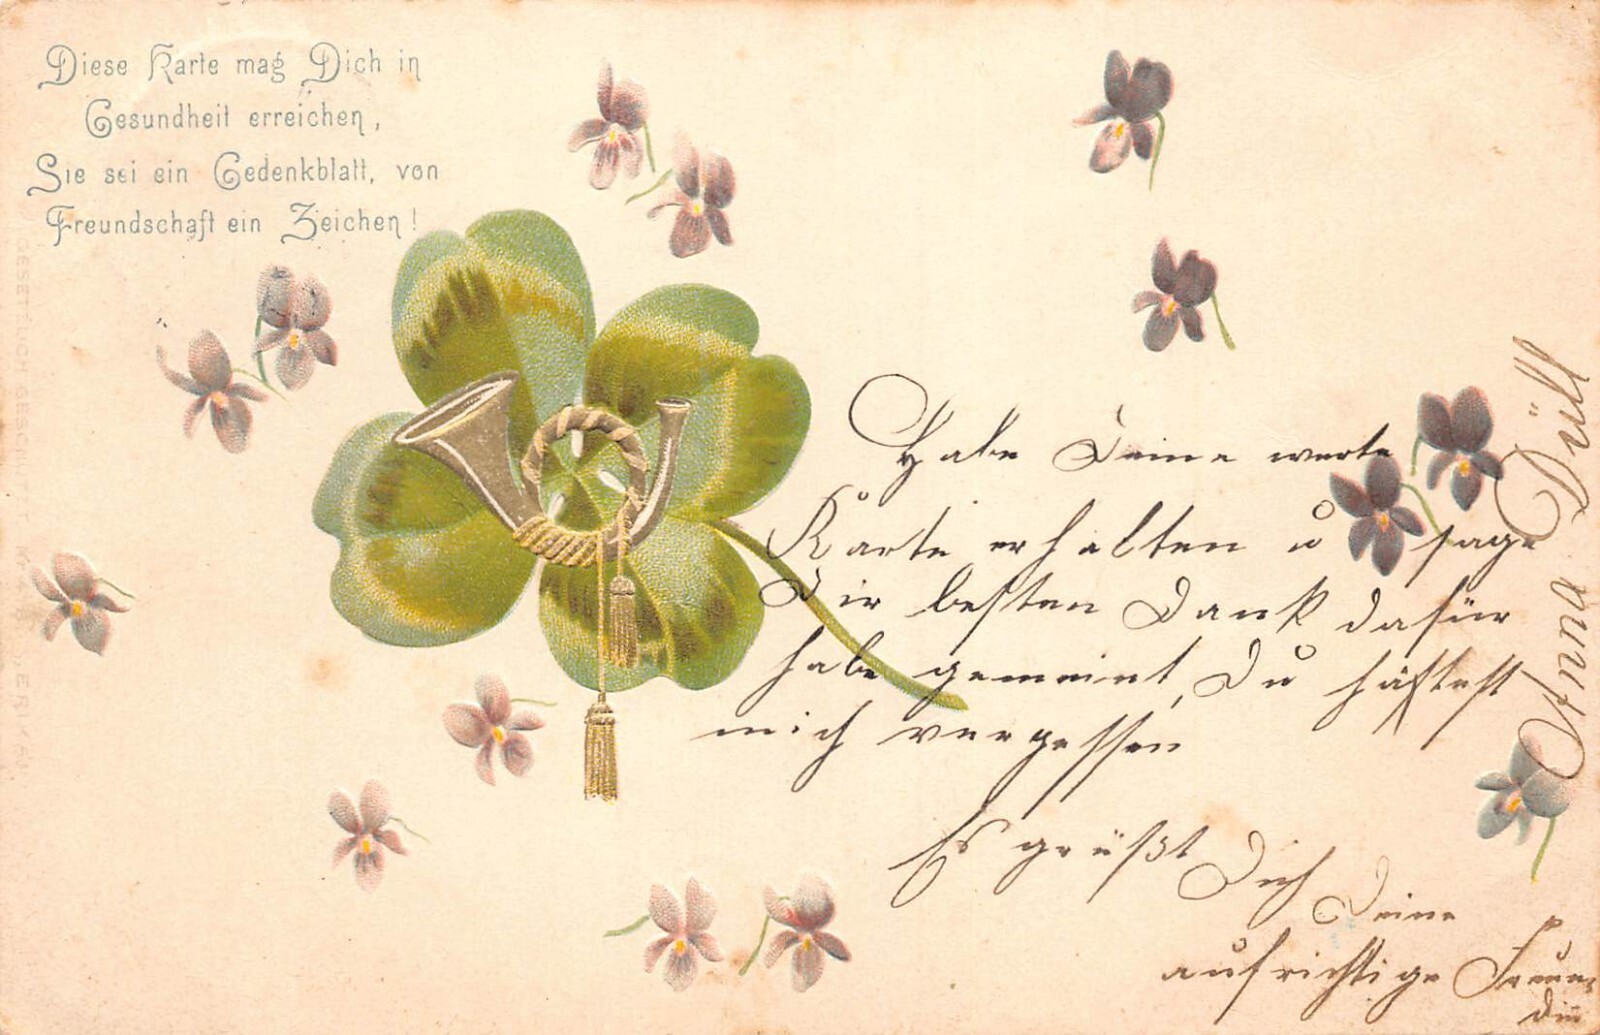 Diese Karte mag Dich in
Gesundheit erreichen,
Sie sei ein Gedenkblatt, von
Freundschaft ein Zeichen!
GESETZLICH GESCHÜTZT
Habe Deine werte
Karte erhalten u sage
Dir besten Dank dafür
habe gemeint, Du hättest
mich vergessen
Es grüßt Dich
Deine
aufrichtige Freun-
din
Anna Düll